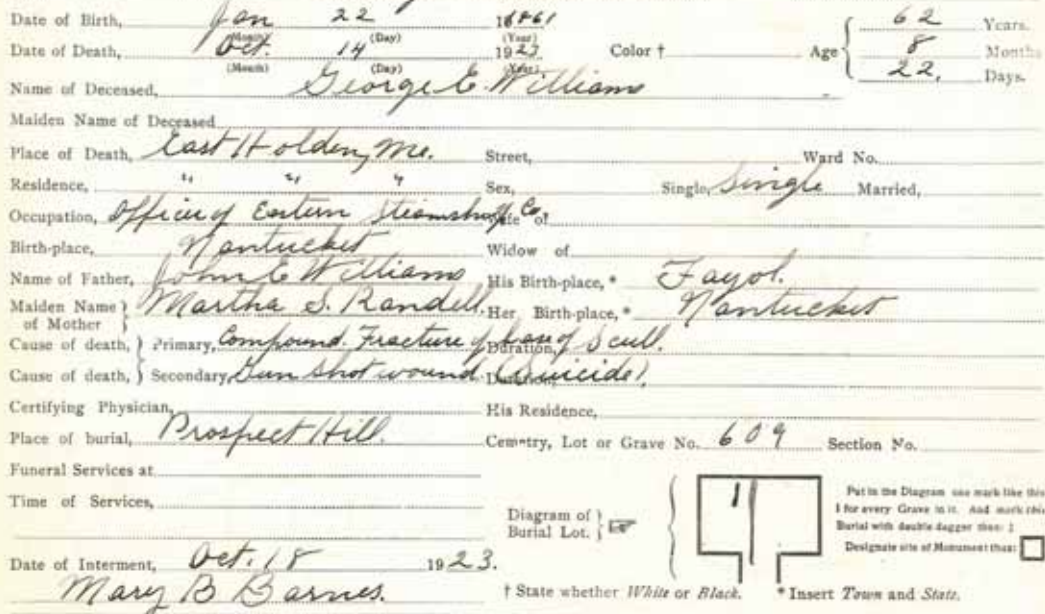 Date of Birth, Jan 22 1861 62 Years.
(Month) (Day) (Year)
Date of Death, Oct. 14 1923 Color † Age 8 Months
(Month) (Day) (Year) 22, Days.
Name of Deceased, George E. Williams
Maiden Name of Deceased
Place of Death, East Holden, Me. Street, Ward No.
Residence, " " " Sex, Single, Single Married,
Occupation, Officer of Eastern Steamship Co. Wife of
Birth-place, Nantucket Widow of
Name of Father, John E Williams His Birth-place, * Fayol.
Maiden Name of Mother } Martha S. Randell. Her Birth-place, * Nantucket
Cause of death, } Primary, Compound Fracture of base of Scull. Duration,
Cause of death, } Secondary, Gun shot wound (Suicide). Duration,
Certifying Physician, His Residence,
Place of burial, Prospect Hill. Cemetry, Lot or Grave No. 609 Section No.
Funeral Services at
Time of Services,
Diagram of Burial Lot. } ☞
Put in the Diagram one mark like this
I for every Grave in it. And mark this
Burial with double dagger thus: ‡
Designate site of Monument thus: □
Date of Interment, Oct. 18 1923.
Mary B Barnes. † State whether White or Black. * Insert Town and State.